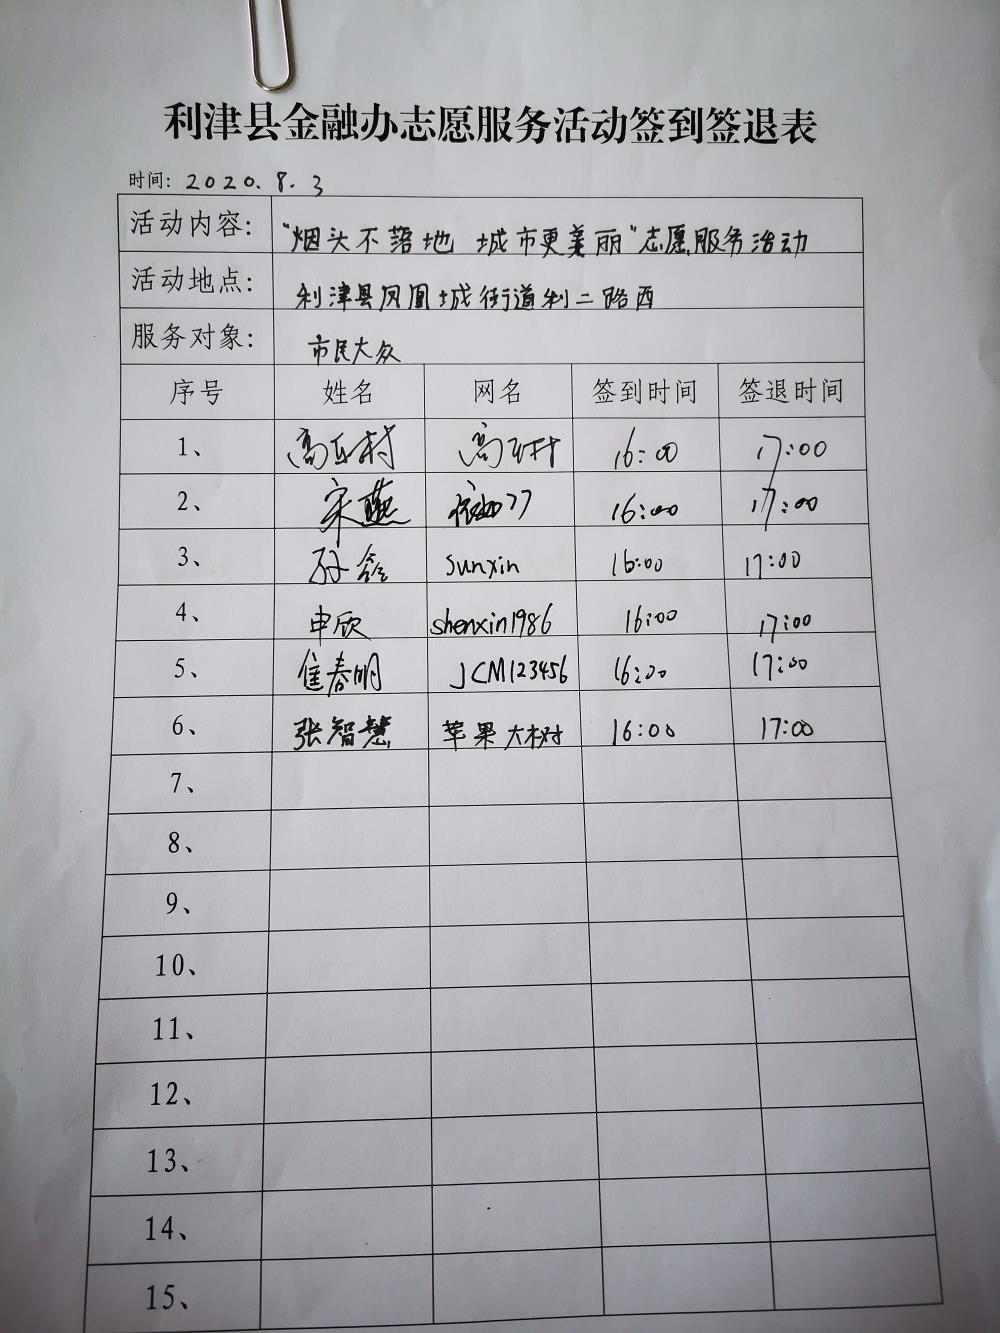 利津县金融办志愿服务活动签到签退表
时间: 2020.8.3
活动内容: "烟头不落地 城市更美丽"志愿服务活动
活动地点: 利津县凤凰城街道利二路西
服务对象: 市民大众
序号 姓名 网名 签到时间 签退时间
1、 高 村 高 村 16:00 17:00
2、 宋燕 77 16:00 17:00
3、 孙鑫 sunxin 16:00 17:00
4、 申欣 shenxin1986 16:00 17:00
5、 隹春明 JCM123456 16:00 17:00
6、 张智慧 苹果大树 16:00 17:00
7、
8、
9、
10、
11、
12、
13、
14、
15、